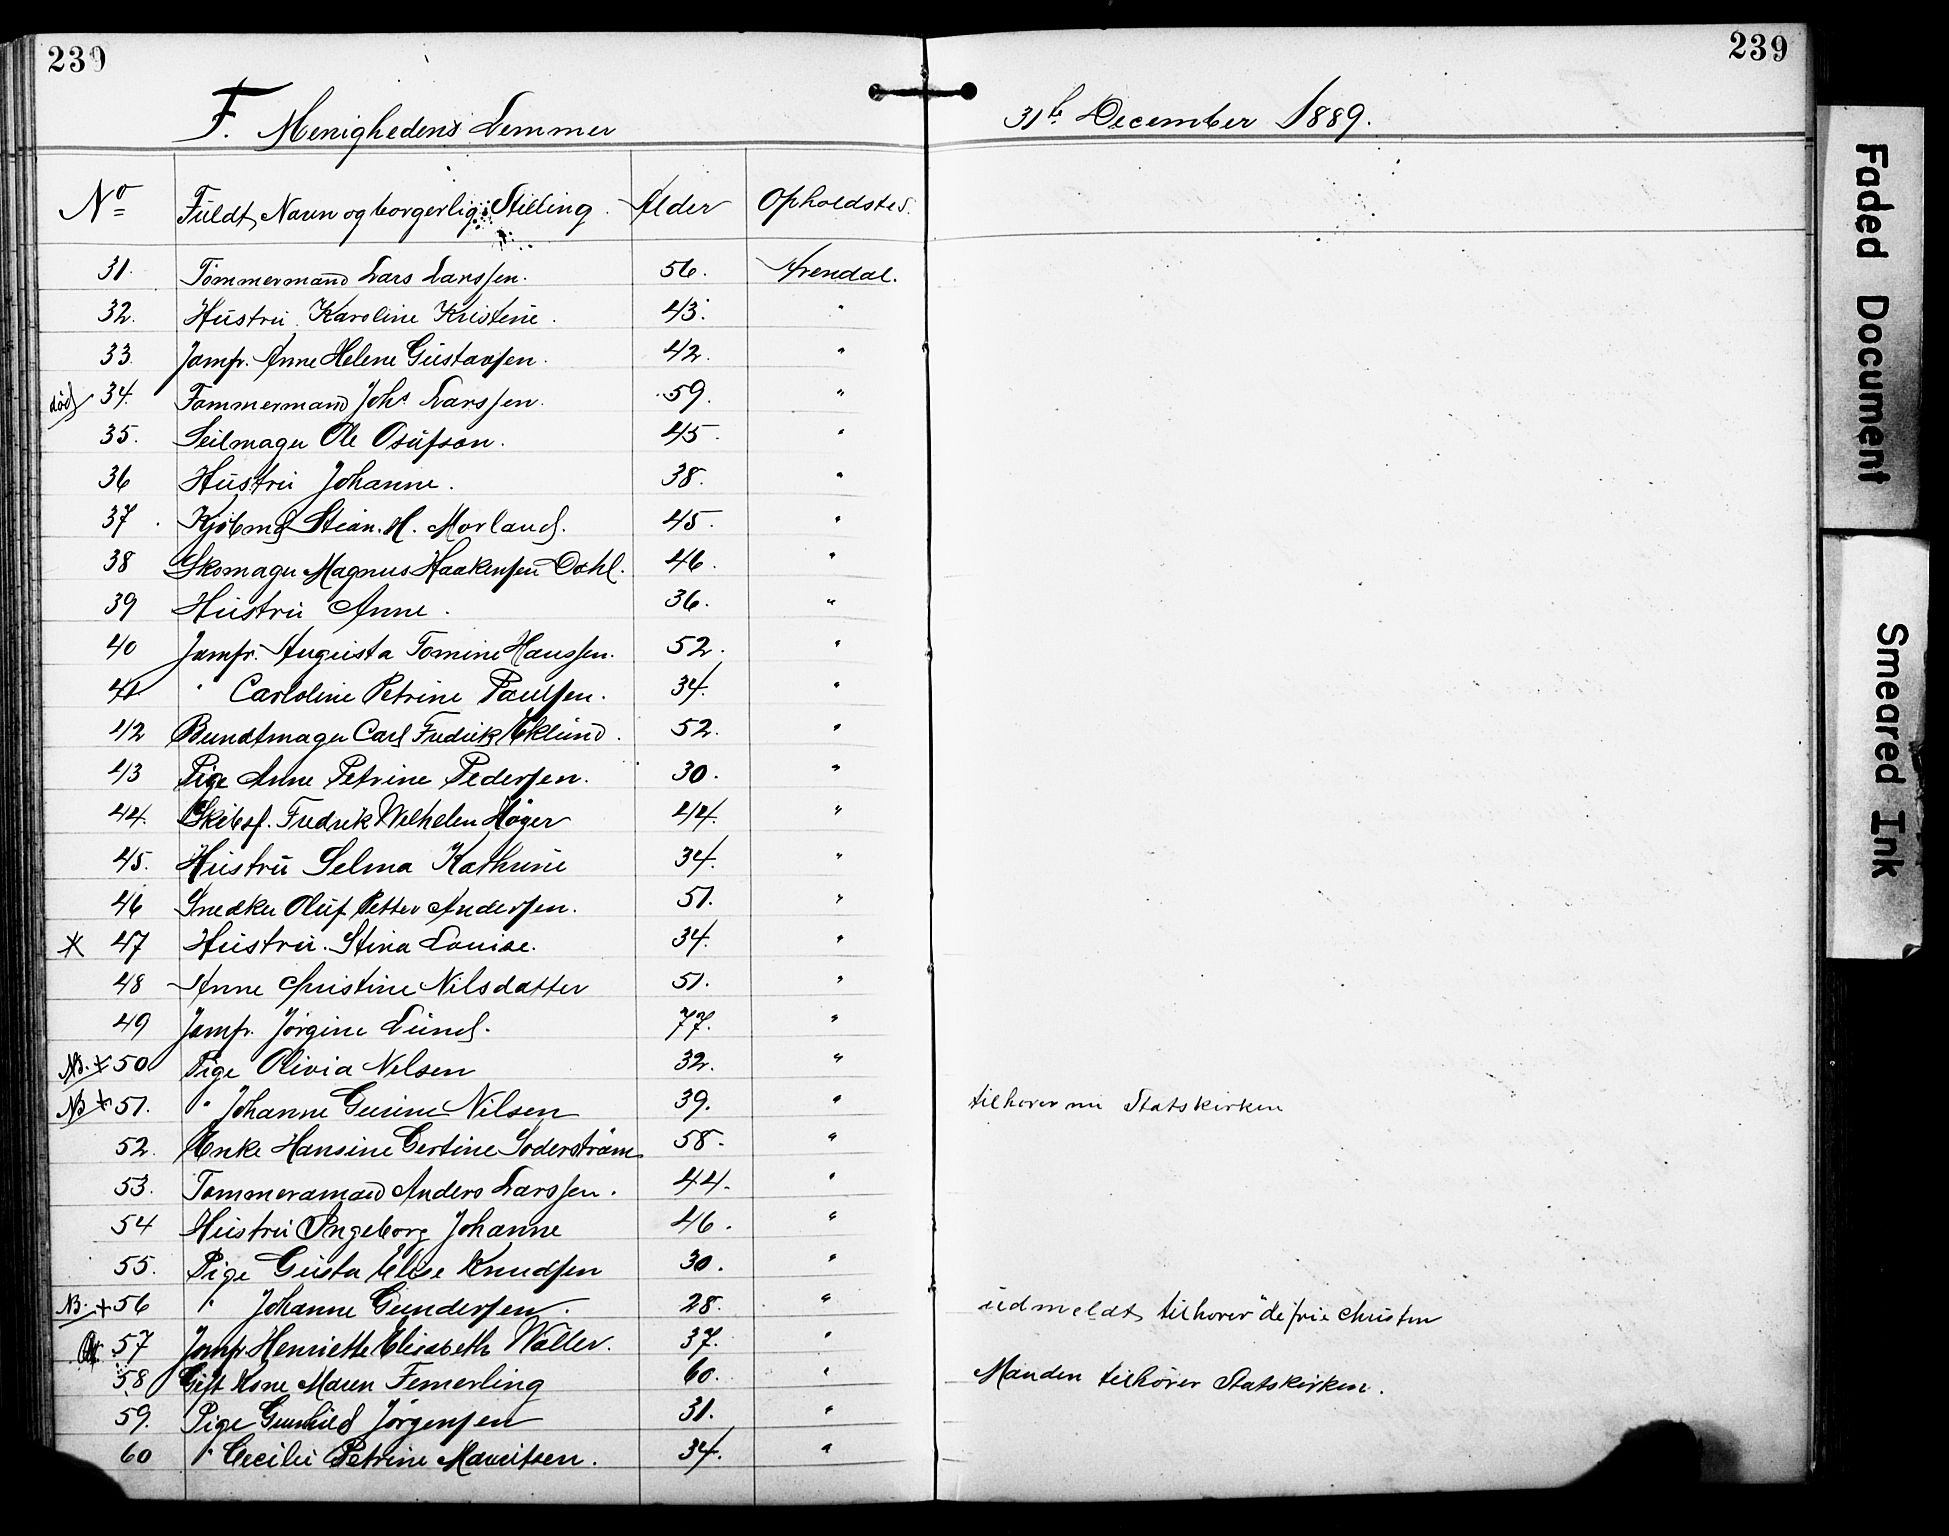 239 239
F. Menighedens Lemmer 31te December 1889.
No Fuldt Navn og borgerlig Stilling. Alder Opholdsted.
31. Tömmermand Lars Larssen. 56. Arendal.
32. Hustru Karoline Kristine. 43. "
33. Jomfr. Anne Helene Gustavsen. 42. "
död 34. Tömmermand Johs Larssen. 59. "
35. Seilmager Ole Osufson. 45. "
36 Hustru Johanne. 38. "
37. Kjöbmd Stian. H. Morland. 45. "
38 Skomager Magnus Haakensen Dahl. 46. "
39 Hustru Anne. 36. "
40 Jomfr. Augusta Tomine Hanssen. 52. "
41 " Carloline Petrine Paulsen. 34. "
42 Bundtmager Carl Fredrik Eklund. 52. "
43 Pige Anne Petrine Pedersen. 30. "
44. Skibsf. Fredrik Wilhelm Höyer 44. "
45. Hustru Selma Kathrine 34. "
46 Snedker Oluf Petter Andersen. 51. "
x 47 Hustru Stina Louise. 34. "
48 Anne Christine Nilsdatter 51. "
49 Jomfr. Jörgine Lund. 77. "
NB. x 50 Pige Olivia Nilsen 32. "
NB x 51. " Johanne Gurine Nilsen 39. " tilhører nu Statskirken
52. Enke Hansine Gertine Soderström 58. "
53. Tommeramand Anders Larssen. 44. "
54 Hustru Ingeborg Johanne 46. "
55. Pige Gusta Elise Knudsen 30. "
NB. x 56 " Johanne Gundersen. 28. " udmeldt, tilhører "de frie Christen
57 Jomfr. Henriette Elisabeth Waller. 37. "
58 Gift Kone Maren Femerling 60. " Manden tilhører Statskirken.
59. Pige Gunhild Jörgensen 31. "
60 " Cecilie Petrine Mauritsen. 34. "
Faded Document
Smeared Ink